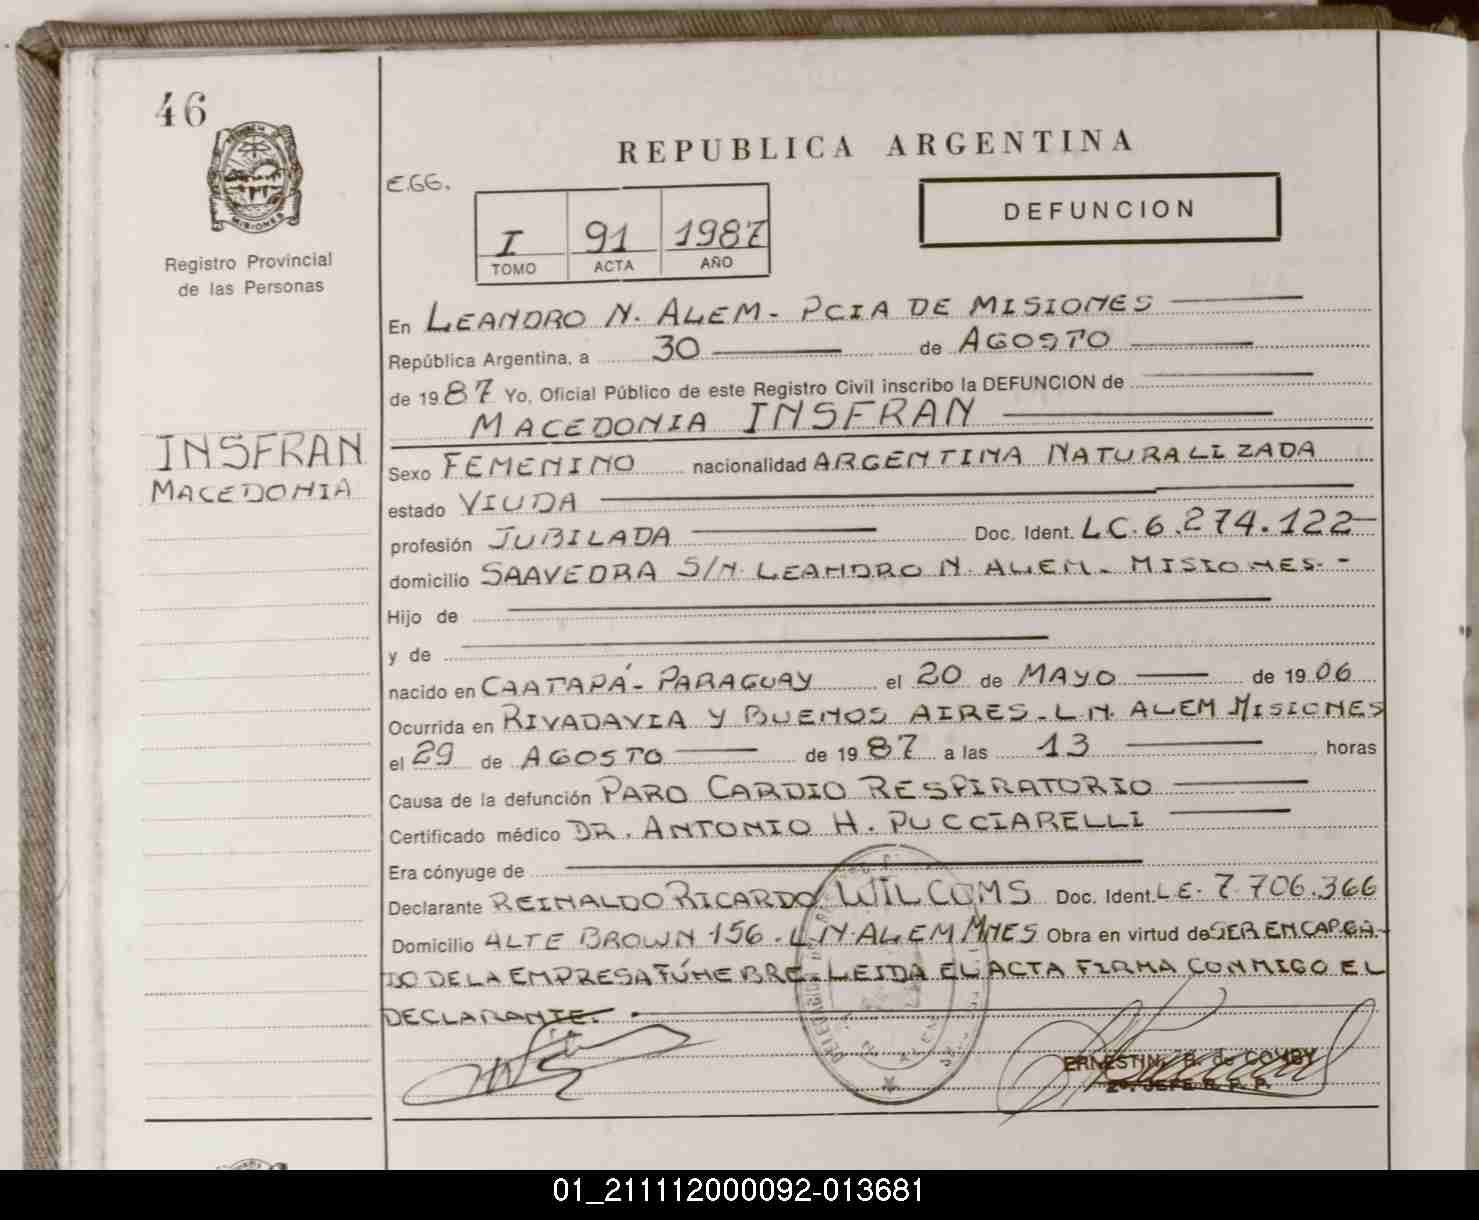 46
MISIONES
Registro Provincial
de las Personas
INSFRAN
MACEDONIA
REPUBLICA ARGENTINA
E.GG.
DEFUNCION
I 91 1987
TOMO ACTA AÑO
En LEANDRO N. ALEM - PCIA DE MISIONES
República Argentina, a 30 de AGOSTO
de 1987 Yo, Oficial Público de este Registro Civil inscribo la DEFUNCION de
MACEDONIA INSFRAN
Sexo FEMENINO nacionalidad ARGENTINA NATURALIZADA
estado VIUDA
profesión JUBILADA Doc. Ident. LC. 6.274.122
domicilio SAAVEDRA S/N. LEANDRO N. ALEM - MISIONES. -
Hijo de
y de
nacido en CAATAPÁ - PARAGUAY el 20 de MAYO de 1906
Ocurrida en RIVADAVIA Y BUENOS AIRES - L N. ALEM MISIONES
el 29 de AGOSTO de 1987 a las 13 horas
Causa de la defunción PARO CARDIO RESPIRATORIO
Certificado médico DR. ANTONIO H. PUCCIARELLI
Era cónyuge de
Declarante REINALDO RICARDO WILCOMS Doc. Ident. LE. 7.706.366
Domicilio ALTE BROWN 156 - L.N. ALEM MNES Obra en virtud de SER ENCARGA-
DO DE LA EMPRESA FÚNEBRE. LEIDA EL ACTA FIRMA CONMIGO EL
DECLARANTE.
2º. JEFE R. P. P.
01_211112000092-013681